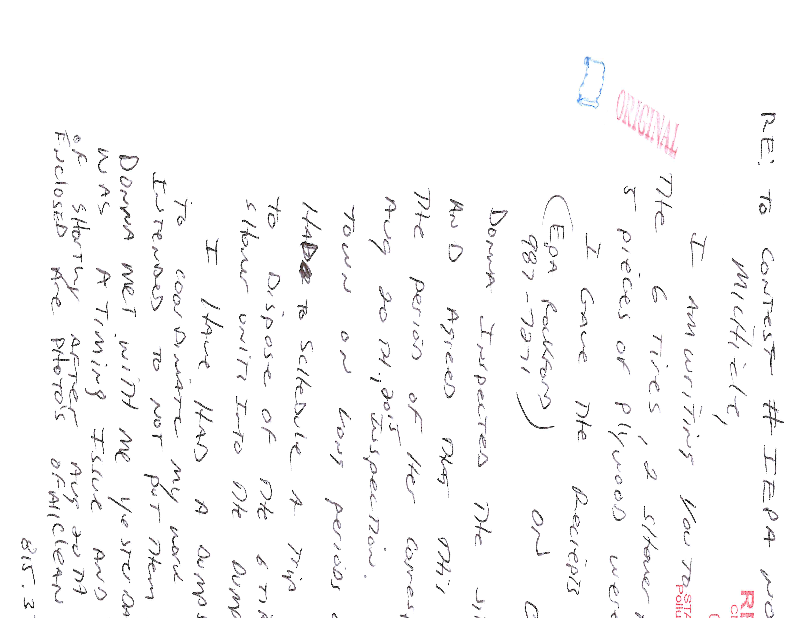 RE: TO CONTEST # IEPA NO
Michele,
I AM WRITING YOU TO
THE 6 TIRES, 2 SHOWER
5 PIECES OF PLYWOOD WERE
I GAVE THE RECIEPTS
(EPA ROCKFORD) ON
987-7271
DONNA INSPECTED THE
AND AGREED THAT THIS
THE PERIOD OF HER
AUG 20TH, 2015 INSPECTION.
TOWN ON LONG PERIODS
HAD TO SCHEDULE A TRIP
TO DISPOSE OF THE 6
SHOWER UNITS INTO THE
I HAVE HAD A
TO COORDINATE MY WORK
INTENDED TO NOT PUT THEM
DONNA MET WITH ME
WAS A TIMING ISSUE AND
OF SHORTLY AFTER AUG 20TH
ENCLOSED ARE PHOTO'S OF ALL CLEAN
815.3
ORIGINAL